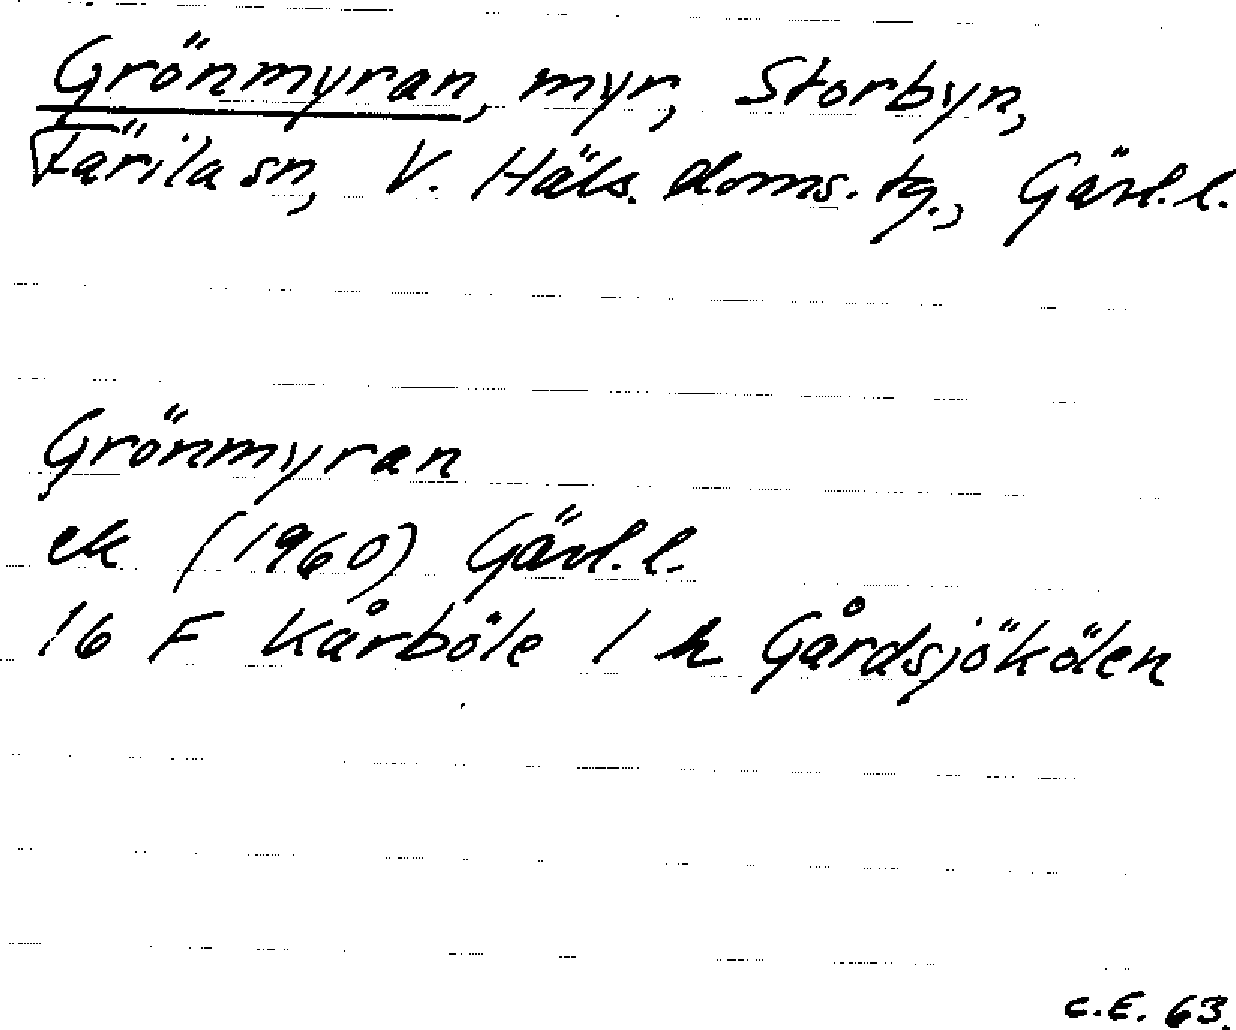 Grönmyran, myr, Storbyn,
Färila sn, V. Häls. doms. tg., Gävl. l.
Grönmyran
ek (1960) Gävl. l.
16 F Kårböle 1 h Gårdsjökölen
C.E. 63.